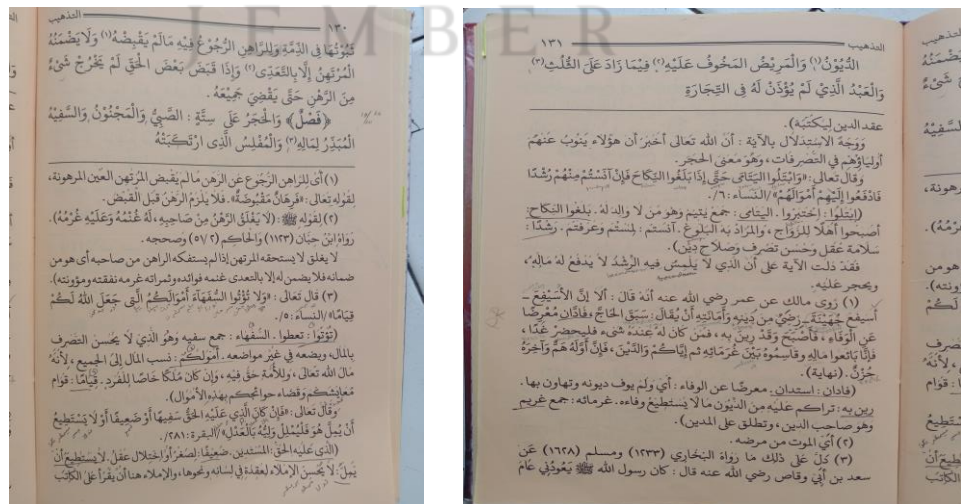 JEMBER
١٣٠ التذهيب
ثُبُوْتُهَا فِى الذِّمَّةِ وَلِلرَّاهِنِ الرُّجُوْعُ فِيْهِ مَالَمْ يَقْبِضْهُ (١) وَلَا يَضْمَنُهُ
الْمُرْتَهِنُ إِلَّا بِالتَّعَدِّى (٢) وَإِذَا قَبَضَ بَعْضَ الْحَقِّ لَمْ يَخْرُجْ شَىْءٌ
مِنَ الرَّهْنِ حَتَّى يَقْضِيَ جَمِيْعَهُ .
﴿فَصْلٌ﴾ وَالْحَجْرُ عَلَى سِتَّةٍ : الصَّبِيُّ وَالْمَجْنُوْنُ وَالسَّفِيْهُ
الْمُبَذِّرُ لِمَالِهِ (٣) وَالْمُفْلِسُ الَّذِى ارْتَكَبَتْهُ
(١) أى للراهن الرجوع عن الرهن ما لم يقبض المرتهن العين المرهونة،
لقوله تعالى : «فرهان مقبوضة». فلا يلزم الرهن قبل القبض.
(٢) لقوله ﷺ : (لا يغلق الرهن من صاحبه، له غنمه وعليه غرمه).
رواه ابن حبان (١١٢٣) والحاكم (٥١/٢) وصححه.
لا يغلق لا يستحقه المرتهن إذا لم يستفكه الراهن من صاحبه أى هو من
ضمانه فلا يضمن له إلا بالتعدى غنمه فوائده وثمراته غرمه نفقته ومؤونته).
(٣) قال تعالى : «ولا تؤتوا السفهاء أموالكم التى جعل الله لكم
قياما»/النساء: ٥/.
(تؤتوا: تعطوا. السفهاء : جمع سفيه وهو الذي لا يحسن التصرف
بالمال، ويضعه في غير مواضعه. أموالكم: نسب المال إلى الجميع، لأنه
مال الله تعالى، وللأمة حق فيه، وإن كان ملكا خاصا للفرد. قياما: قوام
معايشكم وقضاء حوائجكم بهذه الأموال).
وقال تعالى: «فإن كان الذي عليه الحق سفيها أو ضعيفا أو لا يستطيع
أن يمل هو فليملل وليه بالعدل»/البقرة: ٢٨١/.
(الذى عليه الحق: المستدين. ضعيفا: لصغر أو اختلال عقل. لا يستطيع أن
يمل: لا يحسن الإملاء لعقدة في لسانه ونحوها، والإملاء هنا أن يقرأ على الكاتب
١٣١ التذهيب
الدُّيُوْنُ (١) وَالْمَرِيْضُ الْمَخُوْفُ عَلَيْهِ (٢) فِيْمَا زَادَ عَلَى الثُّلُثِ (٣)
وَالْعَبْدُ الَّذِيْ لَمْ يُؤْذَنْ لَهُ فِى التِّجَارَةِ
عقد الدين ليكتبه).
ووجه الاستدلال بالآية : أن الله تعالى أخبر أن هؤلاء ينوب عنهم
أولياؤهم في التصرفات، وهو معنى الحجر.
وقال تعالى: «وابتلوا اليتامى حتى إذا بلغوا النكاح فإن آنستم منهم رشدا
فادفعوا إليهم أموالهم»/النساء : ٦/.
(ابتلوا : اختبروا. اليتامى: جمع يتيم وهو من لا والد له. بلغوا النكاح:
أصبحوا أهلا للزواج، والمراد به البلوغ. آنستم : لمستم وعرفتم. رشدا :
سلامة عقل وحسن تصرف وصلاح دين).
فقد دلت الآية على أن الذي لا يلمس فيه الرشد لا يدفع له ماله،
ويحجر عليه.
(١) روى مالك عن عمر رضي الله عنه أنه قال : ألا إن الأسيفع -
أسيفع جهينة - رضي من دينه وأمانته أن يقال: سبق الحاج، فادان معرضا
عن الوفاء، فأصبح وقد رين به، فمن كان له عنده شيء فليحضر غدا،
فإنا بائعوا ماله وقاسموه بين غرمائه ثم إياكم والدين، فإن أوله هم وآخره
حزن. (نهاية).
(فادان: استدان. معرضا عن الوفاء: أي ولم يوف ديونه وتهاون بها.
رين به: تراكم عليه من الديون ما لا يستطيع وفاءه. غرمائه: جمع غريم
وهو صاحب الدين، وتطلق على المدين).
(٢) أي الموت من مرضه.
(٣) دل على ذلك ما رواه البخاري (١٢٣٣) ومسلم (١٦٢٨) عن
سعد بن أبي وقاص رضي الله عنه قال : كان رسول الله ﷺ يعودني عام